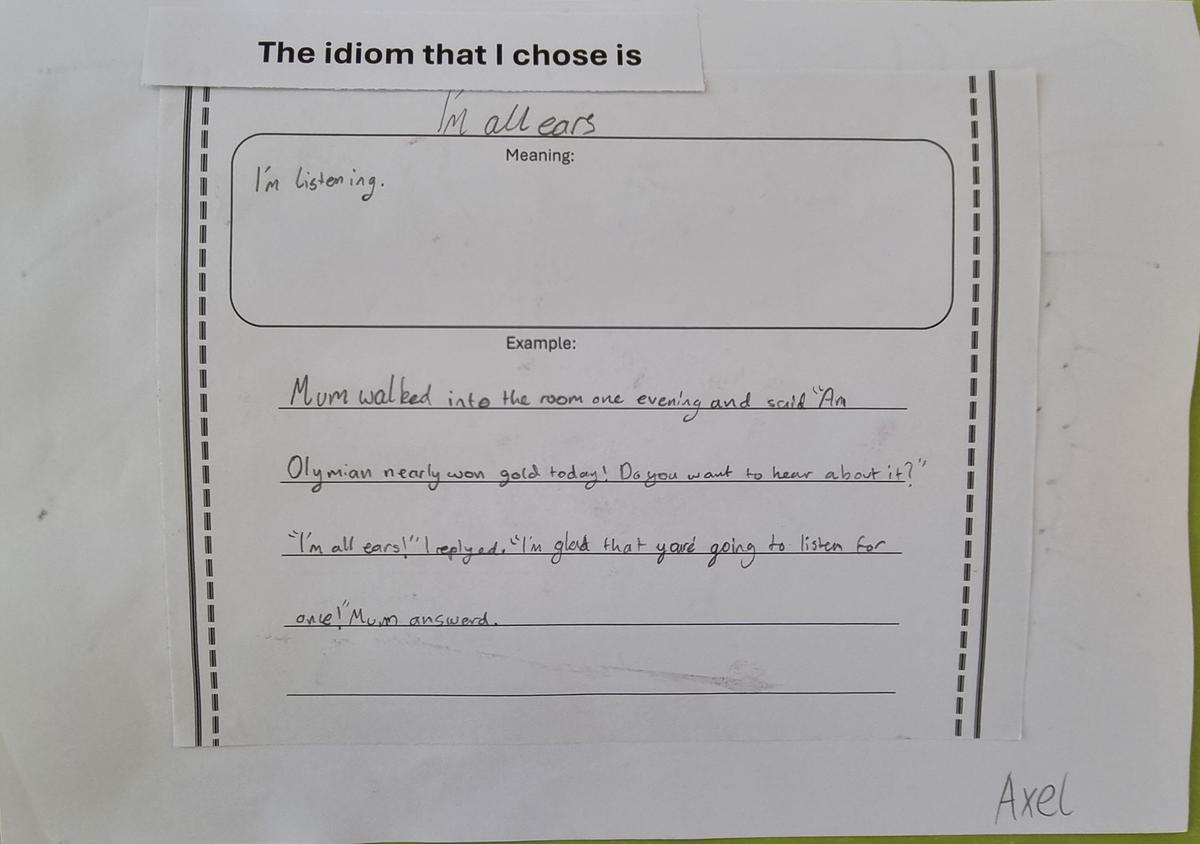 The idiom that I chose is
I'm all ears
Meaning:
I'm listening.
Example:
Mum walked into the room one evening and said "An
Olymian nearly won gold today! Do you want to hear about it?"
"I'm all ears!" I replyed. "I'm glad that you're going to listen for
once!" Mum answerd.
Axel